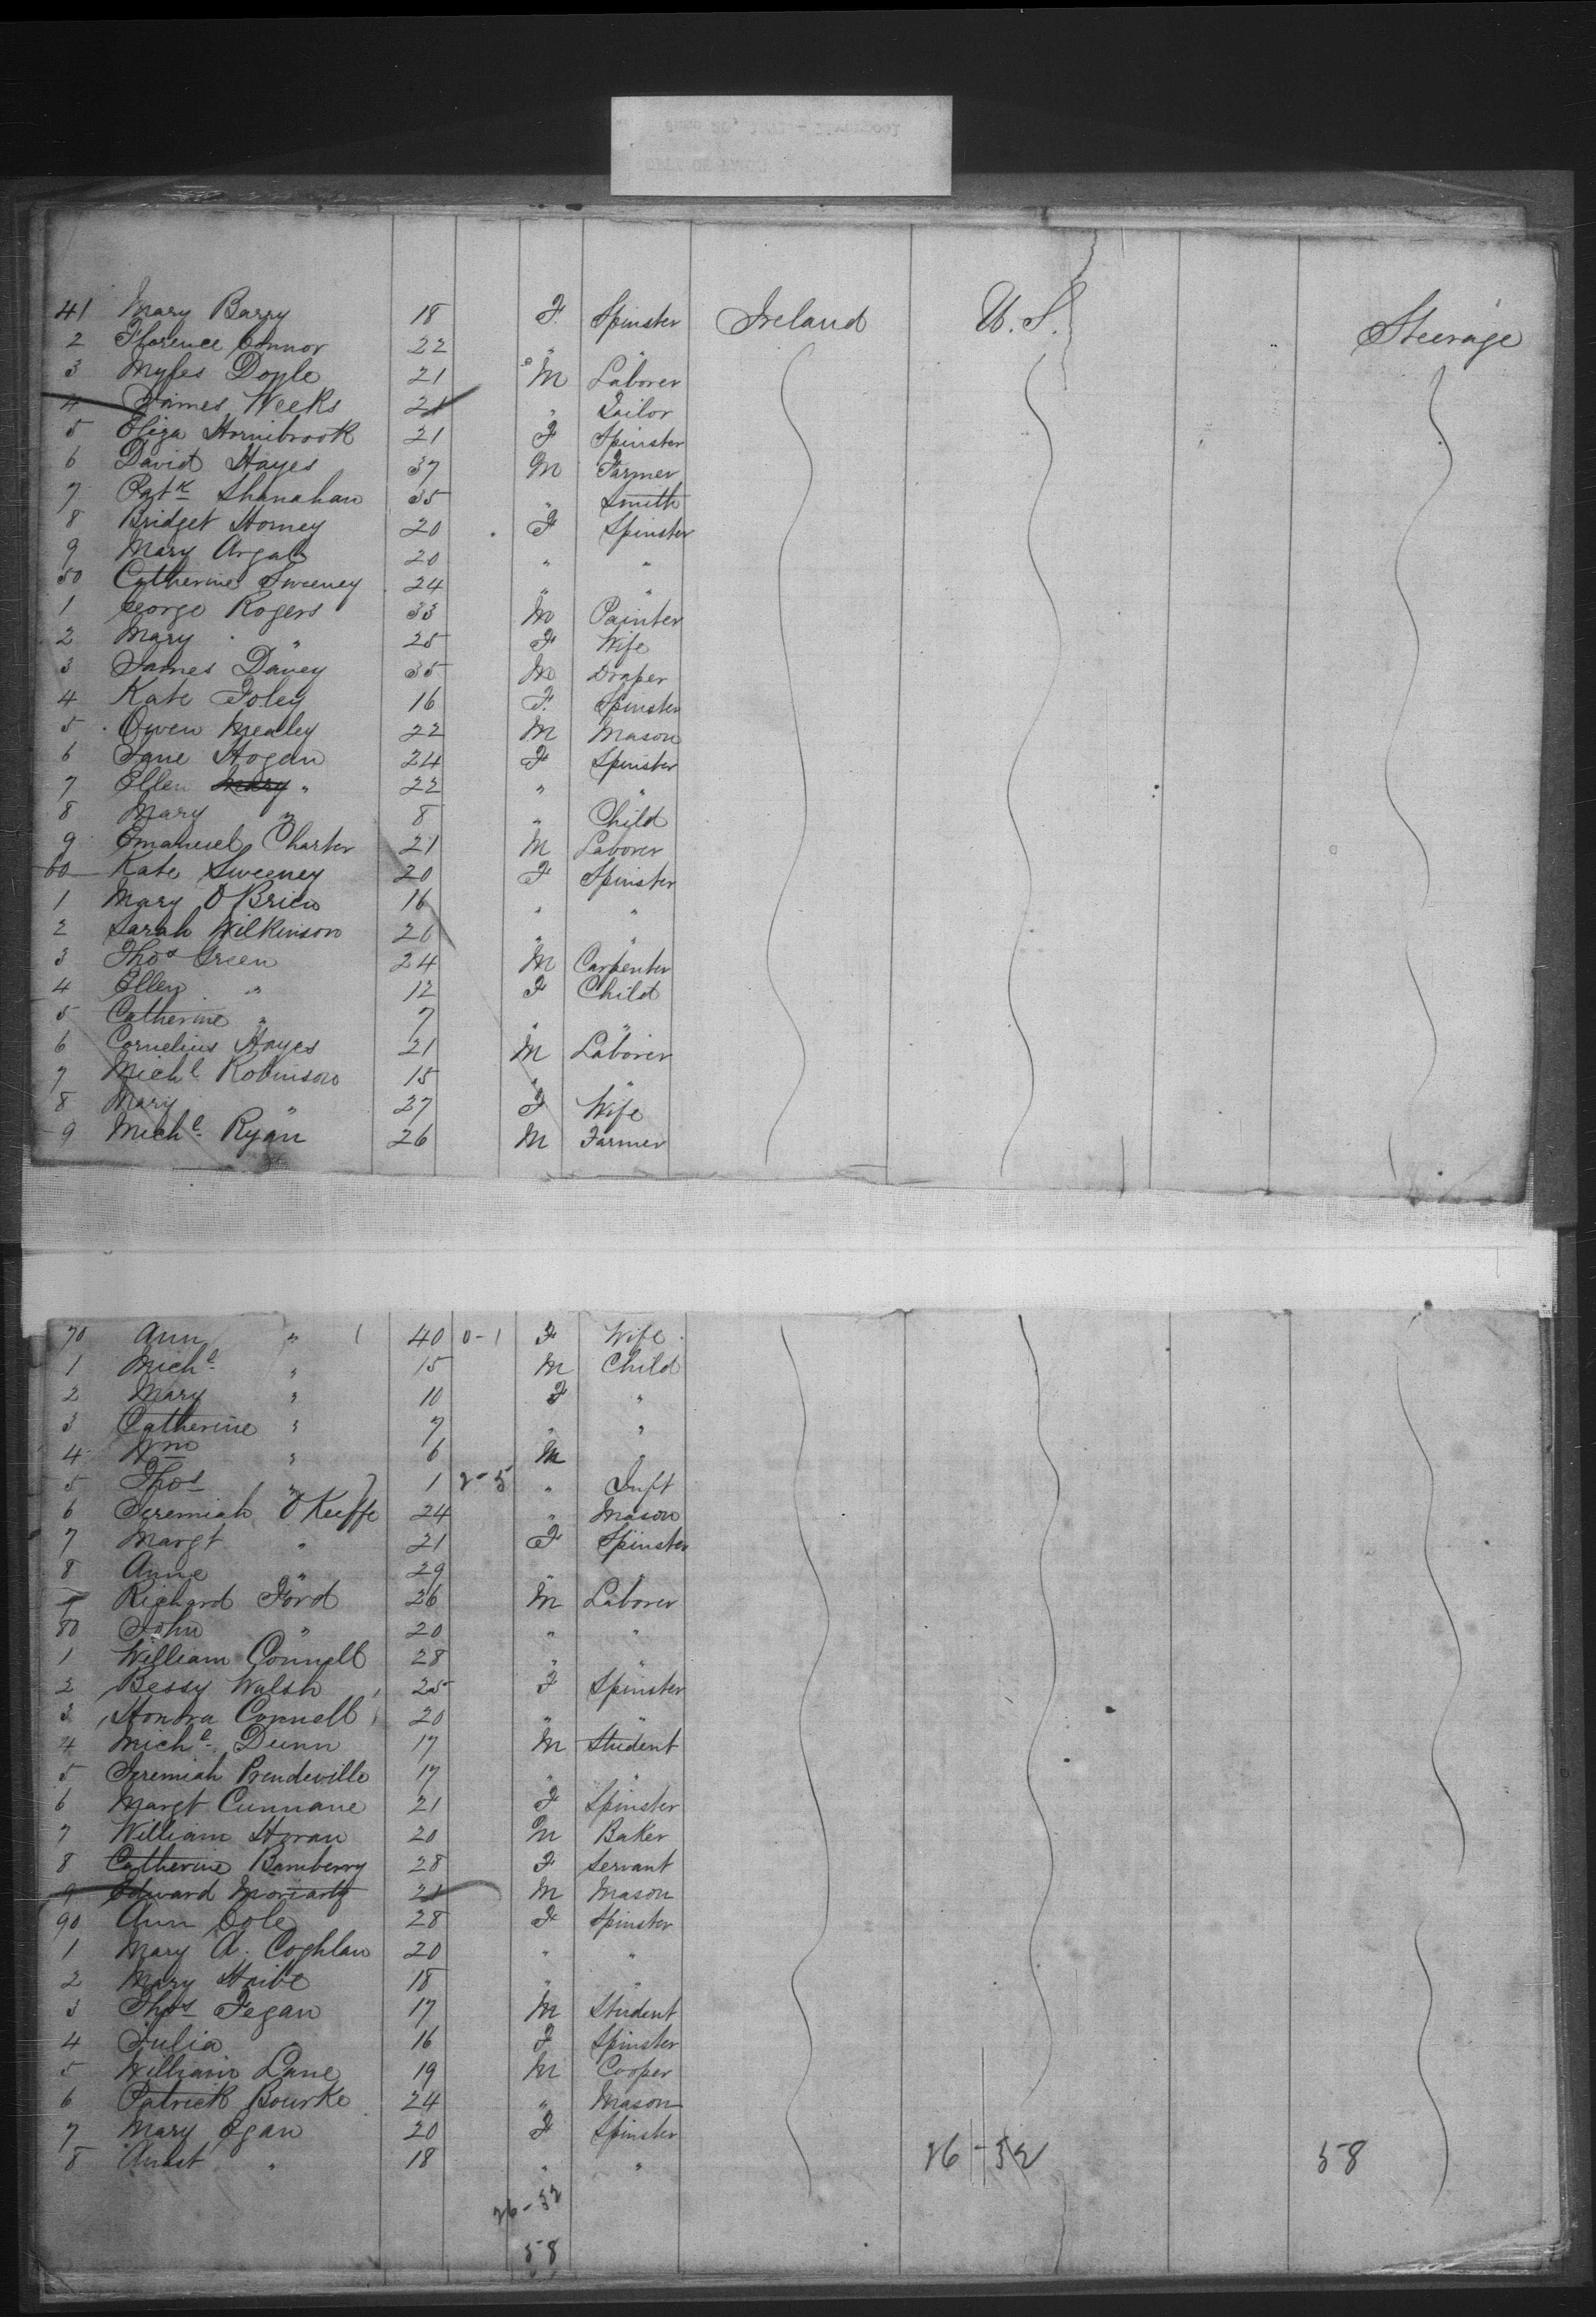 41 Mary Barry 18 F. Spinster Ireland U.S. Steerage
2 Florence Connor 22 " "
3 Myles Doyle 21 M Laborer
4 James Weeks 21 " Tailor
5 Eliza Hornibrook 21 F Spinster
6 David Hayes 37 M Farmer
7 Patk Shanahan 35 " Smith
8 Bridget Horney 20 F Spinster
9 Mary 20 " "
50 Catherine Sweeney 24 " "
1 George Rogers 33 M Painter
2 Mary " 25 F Wife
3 James Davey 35 M Draper
4 Kate Foley 16 F. Spinster
5 Owen Mealey 22 M Mason
6 Jane Hogan 24 F Spinster
7 Ellen Mary " 22 " "
8 Mary " 8 " Child
9 Emanuel Charter 21 M Laborer
60 Kate Sweeney 20 F Spinster
1 Mary O'Brien 16 " "
2 Sarah Wilkinson 20 " "
3 Thos Green 24 M Carpenter
4 Ellen " 12 F Child
5 Catherine " 7 " "
6 Cornelius Hayes 21 M Laborer
7 Michl Robinson 15 " "
8 Mary " 27 F Wife
9 Michl Ryan 26 M Farmer
70 Ann " 40 0-1 F Wife
1 Michl " 15 M Child
2 Mary " 10 F "
3 Catherine " 7 " "
4 Wm " 6 M "
5 Thos " 1 2-5 " Inft
6 Jeremiah O'Keeffe 24 " Mason
7 Margt " 21 F Spinster
8 Anne " 29 " "
9 Richard Ford 26 M Laborer
80 John " 20 " "
1 William Connell 28 " "
2 Bessy Walsh 25 F Spinster
3 Honora Connell 20 " "
4 Michl Dunn 17 M Student
5 Jeremiah Prendeville 17 " "
6 Margt Cunnane 21 F Spinster
7 William Horan 20 M Baker
8 Catherine Bamberry 28 F Servant
9 Edward Moriarty 21 M Mason
90 Ann Cole 28 F Spinster
1 Mary A. Coghlan 20 " "
2 Mary 18 " "
3 Thos Fegan 17 M Student
4 Julia " 16 F Spinster
5 William Lane 19 M Cooper
6 Patrick Bourke 24 " Mason
7 Mary Egan 20 F Spinster
8 Anast " 18 " "
26-32 58
26-32
58